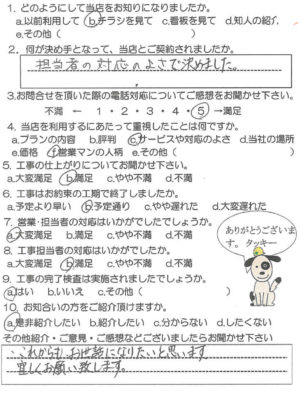 1. どのようにして当店をお知りになりましたか。
a.以前利用して b.チラシを見て c.看板を見て d.知人の紹介
e.その他(                )
2. 何が決め手となって、当店とご契約されましたか。
担当者の対応のよさで決めました。
3.お問合せを頂いた際の電話対応についてご感想をお聞かせ下さい。
不満 ← 1・2・3・4・5→満足
4. 当店を利用するにあたって重視したことは何ですか。
a.プランの内容 b.評判 c.サービスや対応のよさ d.当社の場所
e.価格 f.営業マンの人柄 e.その他(        )
5. 工事の仕上がりについてお聞かせ下さい。
a.大変満足 b.満足 c.やや不満 d.不満
6. 工事はお約束の工期で終了しましたか。
a.予定より早い b.予定通り c.やや遅れた d.大変遅れた
7. 営業・担当者の対応はいかがでしたでしょうか。
a.大変満足 b.満足 c.やや不満 d.不満
8. 工事担当者の対応はいかがでしたか。
a.大変満足 b.満足 c.やや不満 d.不満
9. 工事の完了検査は実施されましたでしょうか。
a.はい b.いいえ c.その他(        )
10. お知合いの方をご紹介頂けますか。
a.是非紹介したい b.紹介したい c.分からない d.したくない
その他紹介・ご意見・ご感想などございましたらお聞かせ下さい
これからも お世話になりたいと思います
宜しくお願い致します。
ありがとうございます。タッキー